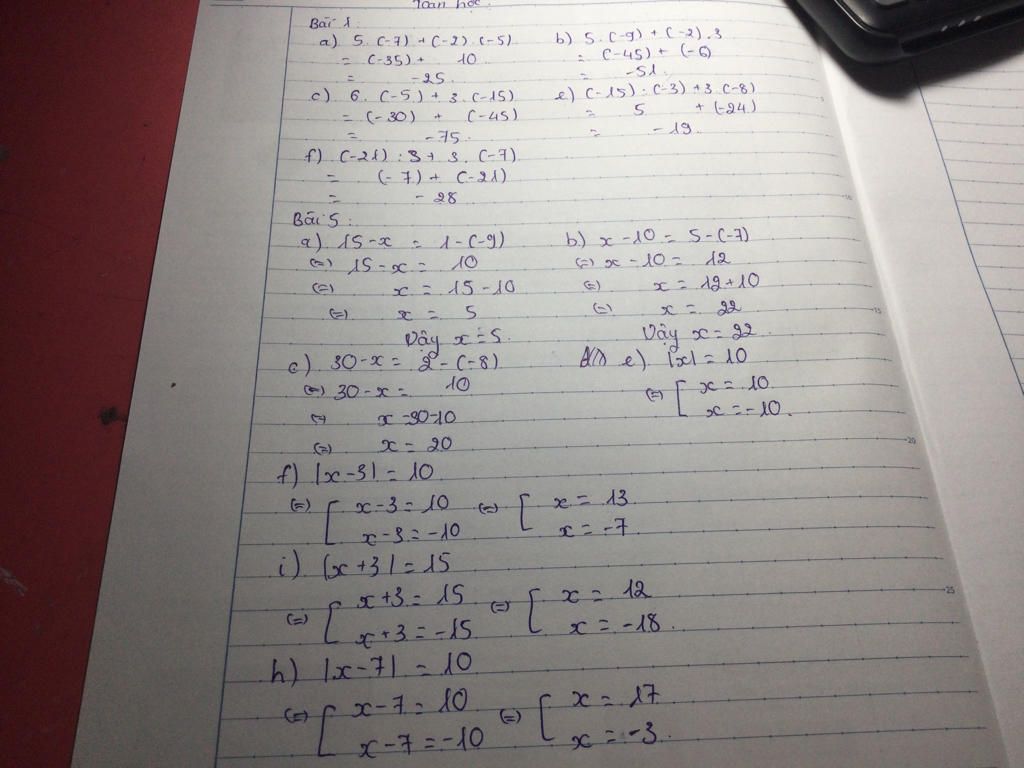 Toán học:
Bài 1:
a) 5.(-7) + (-2).(-5)
= (-35) + 10
= -25
b) 5.(-9) + (-2).3
= (-45) + (-6)
= -51.
c) 6.(-5) + 3.(-15)
= (-30) + (-45)
= -75.
e) (-15):(-3)+3.(-8)
= 5 + (-24)
= -19.
f) (-21):3 + 3.(-7)
= (-7) + (-21)
= -28
Bài 5:
a) 15-x = 1-(-9)
(=) 15-x = 10
(=) x = 15-10
(=) x = 5
Vậy x=5.
b) x-10 = 5-(-7)
(=) x-10 = 12
(=) x = 12+10
(=) x = 22
Vậy x = 22
c) 30-x = 2-(-8)
(=) 30-x = 10
(=) x=30-10
(=) x = 20
e) |x| = 10
(=) [ x = 10
x = -10.
f) |x-3| = 10
(=) [ x-3 = 10 (=) [ x = 13
x-3 = -10 x = -7
i) |x+3| = 15
(=) [ x+3 = 15 (=) [ x = 12
x+3 = -15 x = -18.
h) |x-7| = 10
(=) [ x-7 = 10 (=) [ x = 17
x-7 = -10 x = -3.
15
20
25